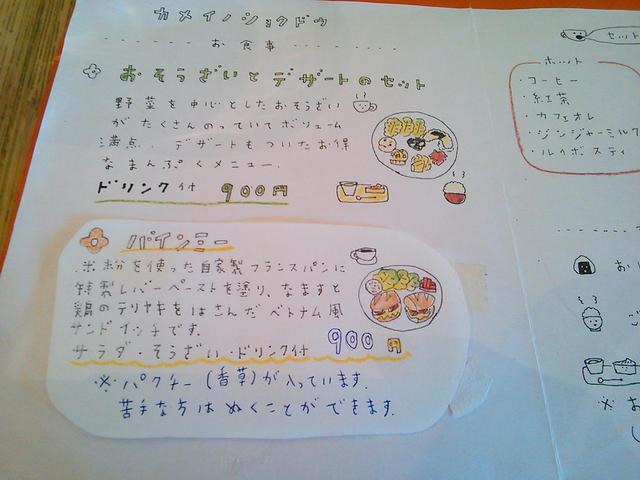 カメイノショクドウ
お食事
おそうざいとデザートのセット
野菜を中心としたおそうざい
がたくさんのっていてボリューム
満点。デザートもついたお得
なまんぷくメニュー。
ドリンク付 900円
バインミー
米粉を使った自家製フランスパンに
特製レバーペーストを塗り、なますと
鶏のテリヤキをはさんだベトナム風
サンドイッチです。
サラダ・そうざい・ドリンク付 900円
※パクチー(香草)が入っています。
苦手な方はぬくことができます。
セット
ホット
・コーヒー
・紅茶
・カフェオレ
・ジンジャーミルク
・ルイボスティ
お
※お